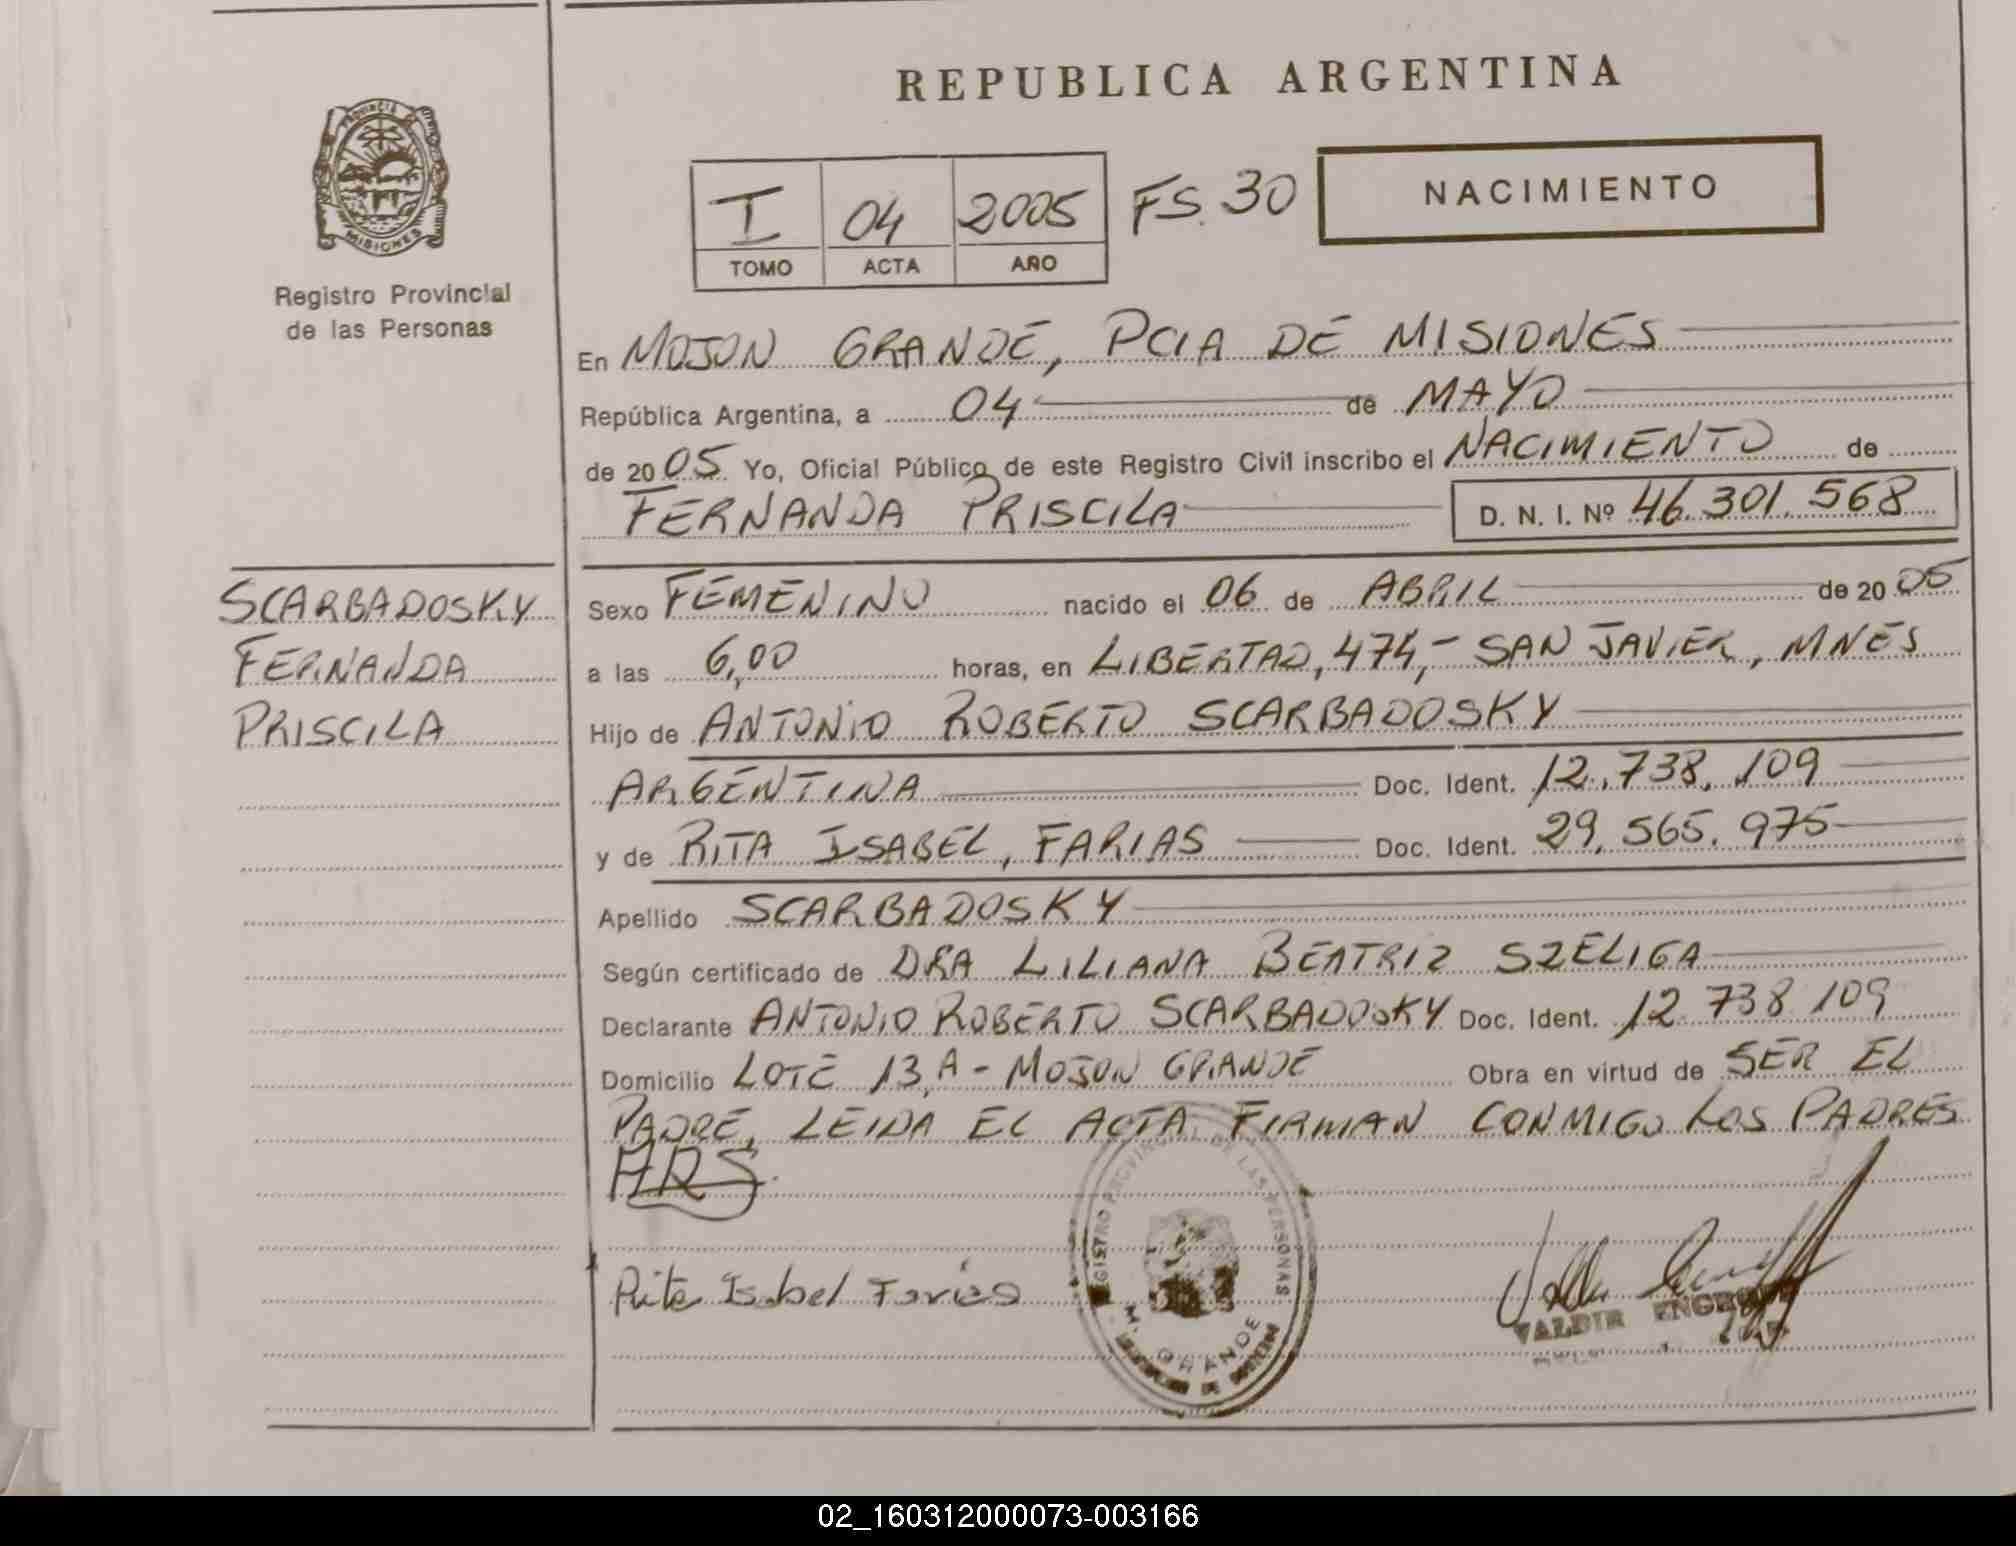 REPUBLICA ARGENTINA
PROVINCIA DE
MISIONES
Registro Provincial
de las Personas
I 04 2005 FS. 30
TOMO ACTA AÑO
NACIMIENTO
En MOJON GRANDE, PCIA DE MISIONES
República Argentina, a 04 de MAYO
de 2005 Yo, Oficial Público de este Registro Civil inscribo el NACIMIENTO de
FERNANDA PRISCILA D. N. I. Nº 46.301.568
SCARBADOSKY
FERNANDA
PRISCILA
Sexo FEMENINO nacido el 06 de ABRIL de 2005
a las 6,00 horas, en LIBERTAD, 474,- SAN JAVIER, MNES
Hijo de ANTONIO ROBERTO SCARBADOSKY
ARGENTINA Doc. Ident. 12.738.109
y de RITA ISABEL, FARIAS Doc. Ident. 29.565.975
Apellido SCARBADOSKY
Según certificado de DRA LILIANA BEATRIZ SZELIGA
Declarante ANTONIO ROBERTO SCARBADOSKY Doc. Ident. 12.738.109
Domicilio LOTE 13,A - MOJON GRANDE Obra en virtud de SER EL
PADRE, LEIDA EL ACTA FIRMAN CONMIGO LOS PADRES
ARS
Rita Isabel Farias
REGISTRO PROVINCIAL DE LAS PERSONAS
M. GRANDE
VALDIR
02_160312000073-003166